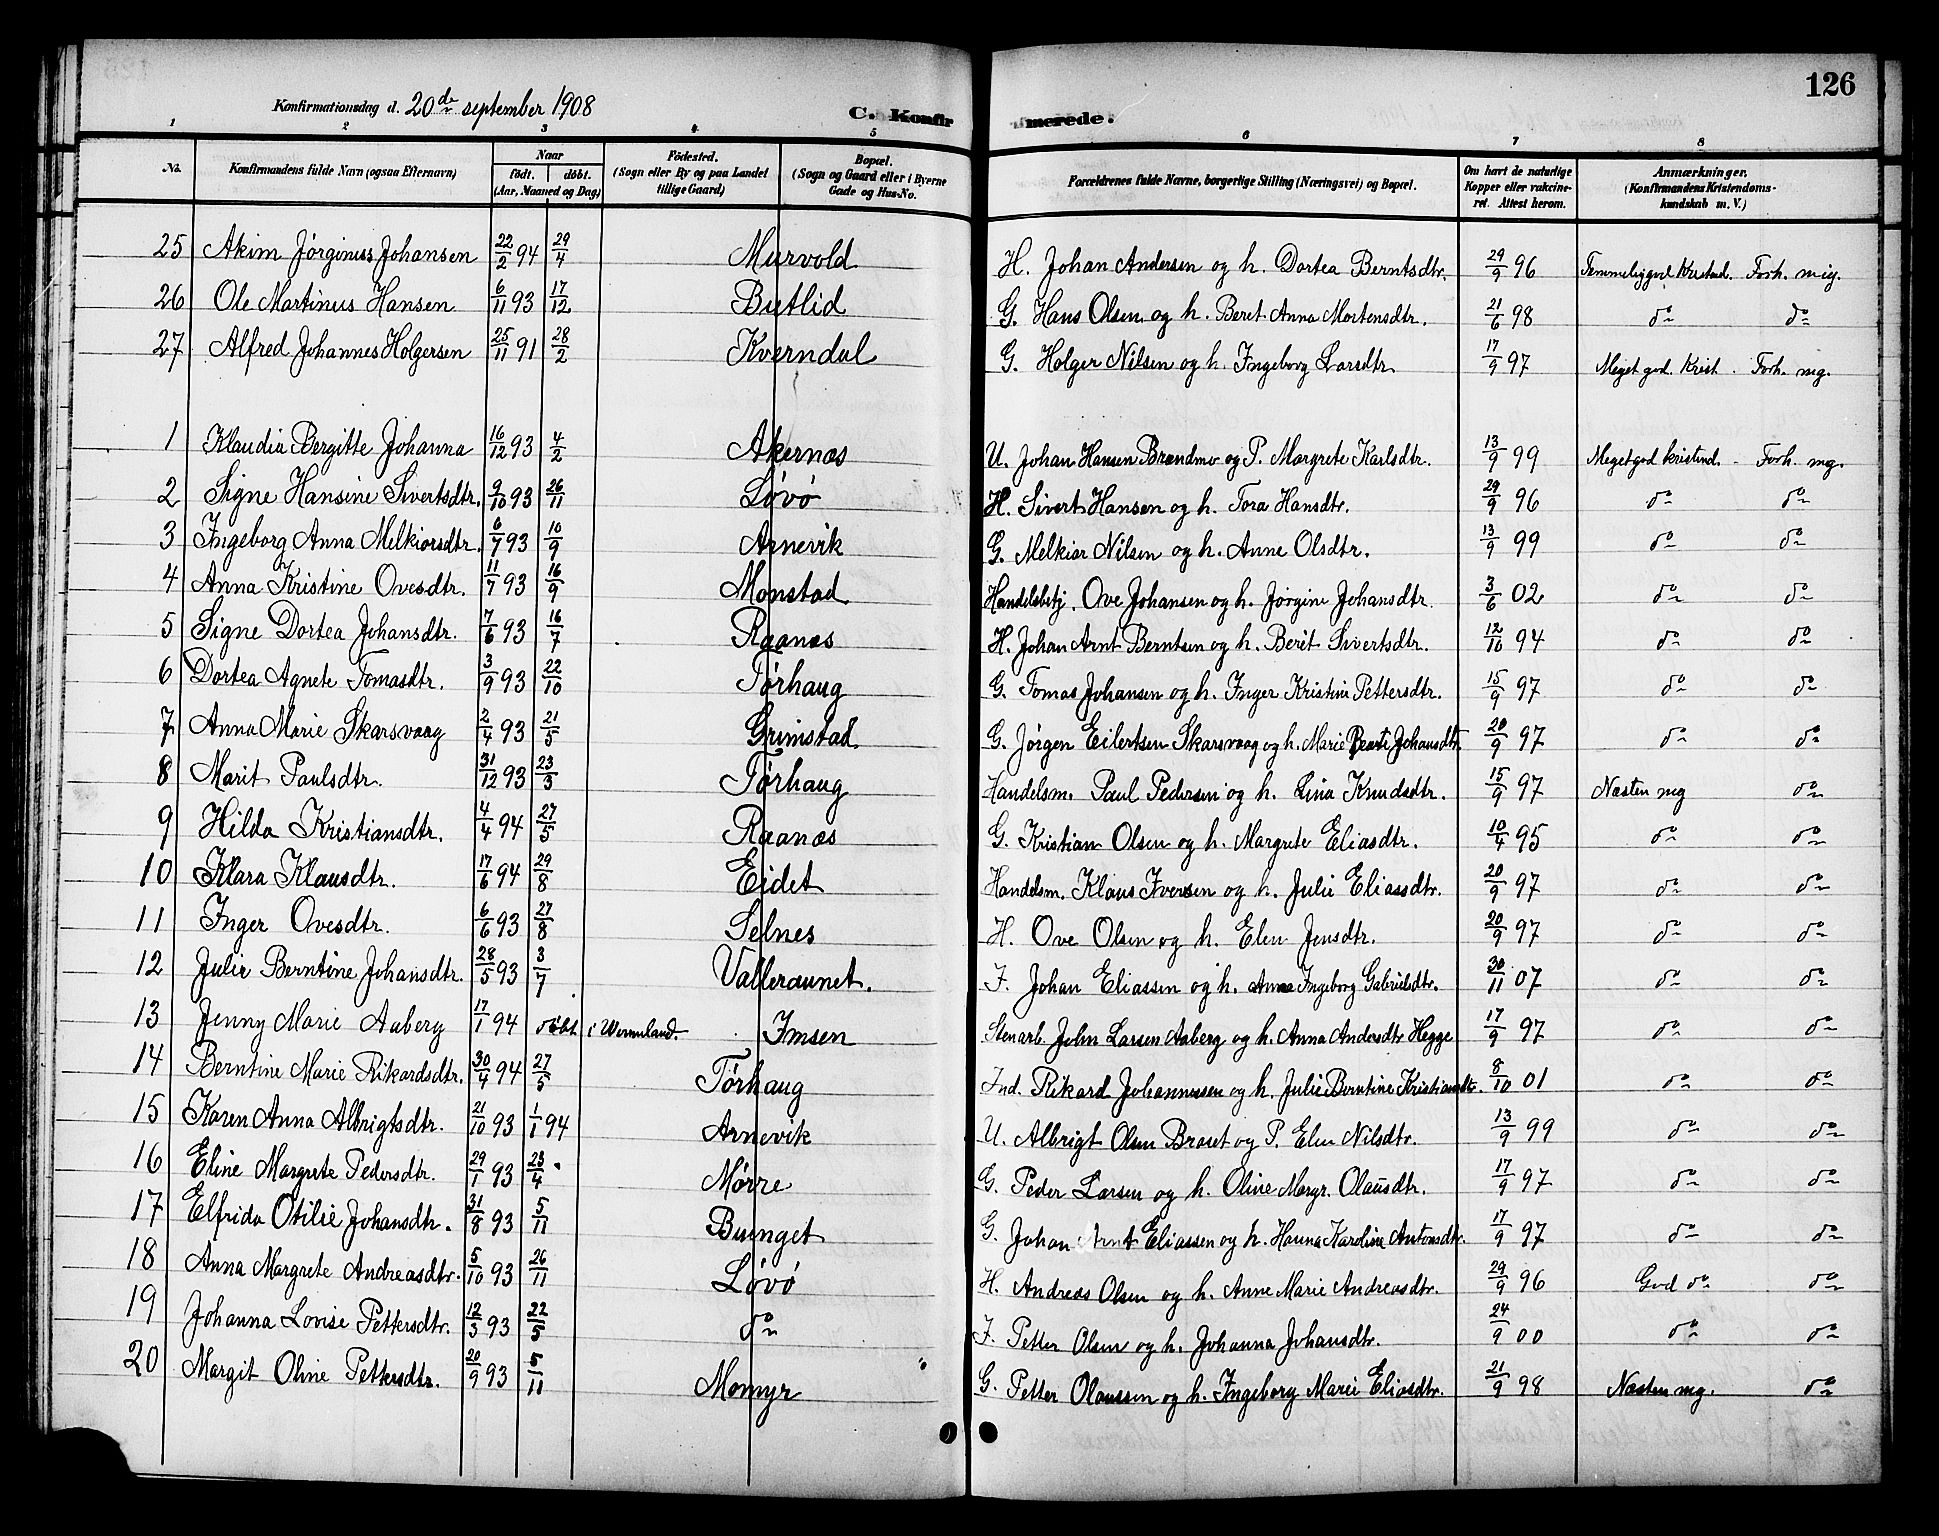 126
Konfirmationsdag d. 20de september 1908
C. Konfirmerede.
1 2 3 4 5 6 7 8
No. Konfirmandens fulde Navn (ogsaa Efternavn) Naar født. døbt. (Aar, Maaned og Dag) Fødested. (Sogn eller By og paa Landet tillige Gaard) Bopæl. (Sogn og Gaard eller i Byerne Gade og Hus-No. Forældrenes fulde Navne, borgerlige Stilling (Næringsvei) og Bopæl. Om havt de naturlige Kopper eller vakcineret. Attest herom. Anmærkninger. (Konfirmandens Kristendomskundskab m. V.)
25 Akim Jørginus Johansen 22/2 94 29/4 Murvold H. Johan Andersen og h. Dortea Berntsdtr. 29/9 96 Temmelig god Kristend. Forh. mig.
26 Ole Martinus Hansen 6/11 93 17/12 Butlid G. Hans Olsen og h. Beret Anna Mortensdtr. 21/6 98 do do
27 Alfred Johannes Holgersen 25/11 91 28/2 Kverndal G. Holger Nilsen og h. Ingeborg Larsdtr 17/9 97 Meget god. Krist. Forh. mg.
1 Klaudia Bergitte Johanna 16/12 93 4/2 Akernæs U. Johan Hansen Brandmo og P. Margrete Karlsdtr. 13/9 99 Meget god kristend. - Forh. mg.
2 Signe Hansine Sivertsdtr. 9/10 93 26/11 Løvø H. Sivert Hansen og h. Tora Hansdtr. 29/9 96 do do
3 Ingeborg Anna Melkiorsdtr. 6/7 93 10/9 Arnevik G. Melkior Nilsen og h. Anne Olsdtr. 13/9 99 do do
4 Anna Kristine Ovesdtr. 11/7 93 16/9 Monstad Handelsbetj. Ove Johansen og h. Jørgine Johansdtr. 3/6 02 do do
5 Signe Dortea Johansdtr. 7/6 93 16/7 Raanæs H. Johan Arnt Berntsen og h. Berit Sivertsdtr. 12/10 94 do do
6 Dortea Agnete Tomasdtr. 3/9 93 22/10 Tørhaug G. Tomas Johansen og h. Inger Kristine Pettersdtr. 15/9 97 do do
7 Anna Marie Skarsvaag 2/4 93 21/5 Grimstad G. Jørgen Eilertsen Skarsvaag og h. Marie Johansdtr 20/9 97 do do
8 Marit Paulsdtr. 31/12 93 23/3 Tørhaug Handelsm. Paul Pedersen og h. Lina Knudsdtr. 15/9 97 Næsten mg do
9 Hilda Kristiansdtr. 4/4 94 27/5 Raanæs G. Kristian Olsen og h. Margrete Eliasdtr. 10/4 95 do do
10 Klara Klausdtr. 17/6 94 29/8 Eidet Handelsm. Klaus Iversen og h. Julie Eliassdtr. 20/9 97 do do
11 Inger Ovesdtr. 6/6 93 27/8 Selnes H. Ove Olsen og h. Elen Jensdtr. 20/9 97 do do
12 Julie Berntine Johansdtr. 28/5 93 3/7 Valleraunet. I. Johan Eliassen og h. Anna Ingeborg Gabrielsdtr. 30/11 07 do do
13 Jenny Marie Aaberg 17/1 94 døbt i Wermland. Imsen Stenarb. John Larsen Aaberg og h. Anna Andersdtr Hegge 17/9 97 do do
14 Berntine Marie Rikardsdtr. 30/4 94 27/5 Tørhaug Ind. Rikard Johannessen og h. Julie Berntine Kristiansdtr. 8/10 01 do do
15 Karen Anna Albrigtsdtr. 21/10 93 1/1 94 Arnevik U. Albrigt Olsen Braset og P. Elen Nilsdtr. 13/9 99 do do
16 Eline Margrete Pedersdtr. 29/1 93 23/4 Mørre G. Peder Larsen og h. Oline Margr. Olausdtr. 17/9 97 do do
17 Elfrida Otilie Johansdtr. 31/8 93 5/11 Buinget G. Johan Arnt Eliassen og h. Hanna Karoline Antonsdtr. 17/9 97 do do
18 Anna Margrete Andreasdtr. 5/10 93 26/11 Løvø H. Andreas Olsen og h. Anne Marie Andreasdtr. 29/9 96 God do do
19 Johanna Lovise Pettersdtr. 12/3 93 22/5 do I. Petter Olsen og h. Johanna Johansdtr. 24/9 00 do do
20 Margit Oline Pettersdtr. 20/9 93 5/11 Momyr G. Petter Olaussen og h. Ingeborg Marie Eliasdtr. 21/9 98 Næsten mg. do